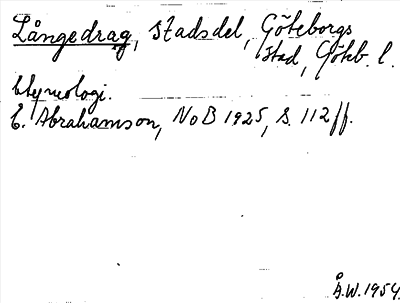 Långedrag, stadsdel, Göteborgs
stad, Götb. l.
Etymologi.
E. Abrahamson, NoB 1925, s. 112 ff.
Å.W. 1954.